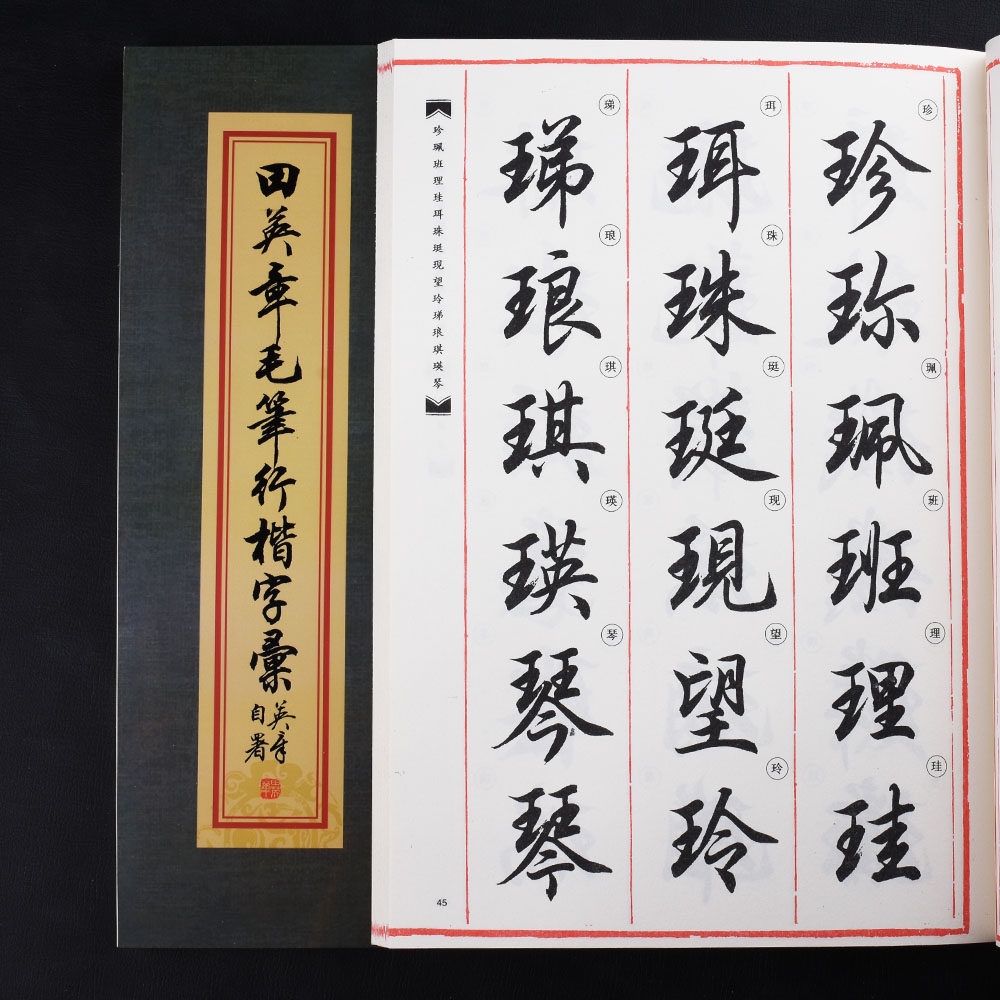 田英章毛筆行楷字彙
英章
自署
珍
珍
珎
珮
珮
班
班
理
理
珪
珪
珥
珥
珠
珠
珽
珽
现
現
望
望
玲
玲
珶
珶
琅
琅
琪
琪
瑛
瑛
琴
琴
琴
珍珮班理珪珥珠珽现望玲珶琅琪瑛琴
45